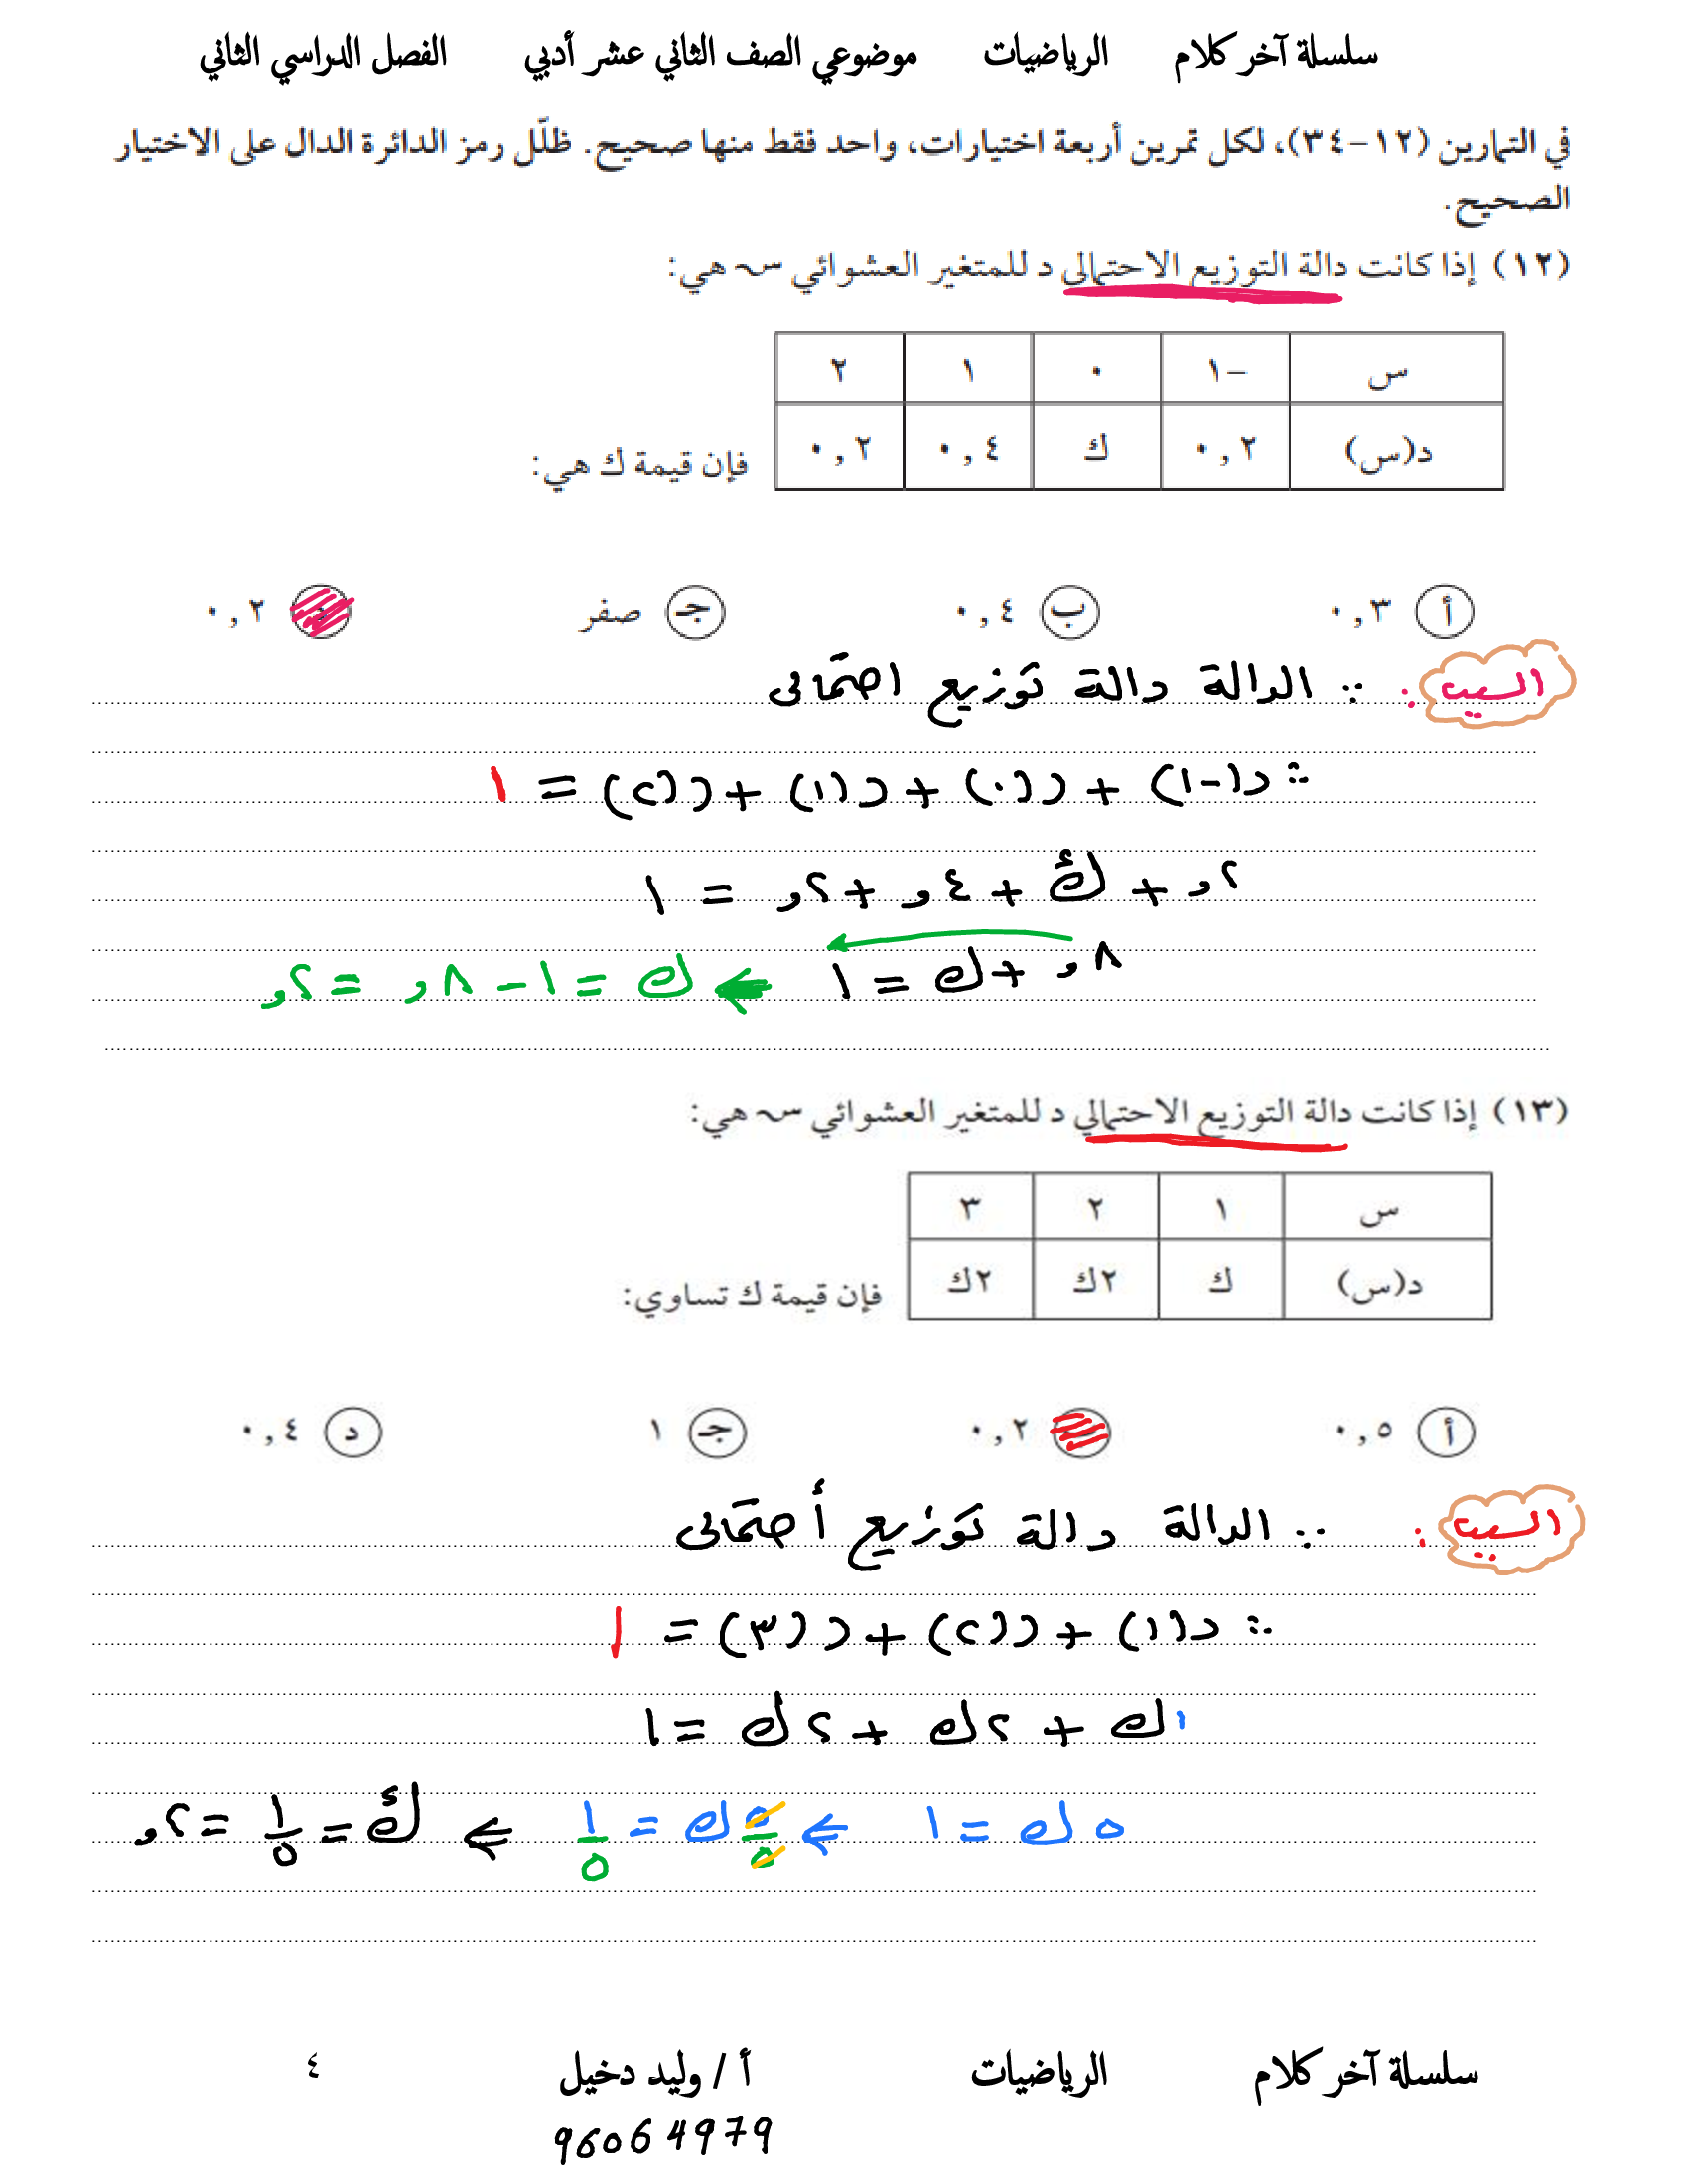 سلسلة آخر كلام الرياضيات موضوعي الصف الثاني عشر أدبي الفصل الدراسي الثاني
في التمارين (١٢-٣٤)، لكل تمرين أربعة اختيارات، واحد فقط منها صحيح. ظلّل رمز الدائرة الدال على الاختيار
الصحيح.
(١٢) إذا كانت دالة التوزيع الاحتمالي د للمتغير العشوائي س هي:
س -١ ٠ ١ ٢
د(س) ٠,٢ ك ٠,٤ ٠,٢ فإن قيمة ك هي:
أ ٠,٣ ب ٠,٤ جـ صفر د ٠,٢
السبب : ∵ الدالة دالة توزيع احتمالى
∴ د(-١) + د(٠) + د(١) + د(٢) = ١
٢, + ك + ٤, + ٢, = ١
٨, + ك = ١ ⇐ ك = ١ - ٨, = ٢,
(١٣) إذا كانت دالة التوزيع الاحتمالي د للمتغير العشوائي س هي:
س ١ ٢ ٣
د(س) ك ٢ك ٢ك فإن قيمة ك تساوي:
أ ٠,٥ ٠,٢ جـ ١ د ٠,٤
السبب : ∵ الدالة دالة توزيع أحتمالى
∴ د(١) + د(٢) + د(٣) = ١
١ك + ٢ك + ٢ك = ١
٥ك = ١ ⇐ ٥/٥ ك = ١/٥ ⇐ ك = ١/٥ = ٢,
سلسلة آخر كلام الرياضيات أ / وليد دخيل ٤
96064979